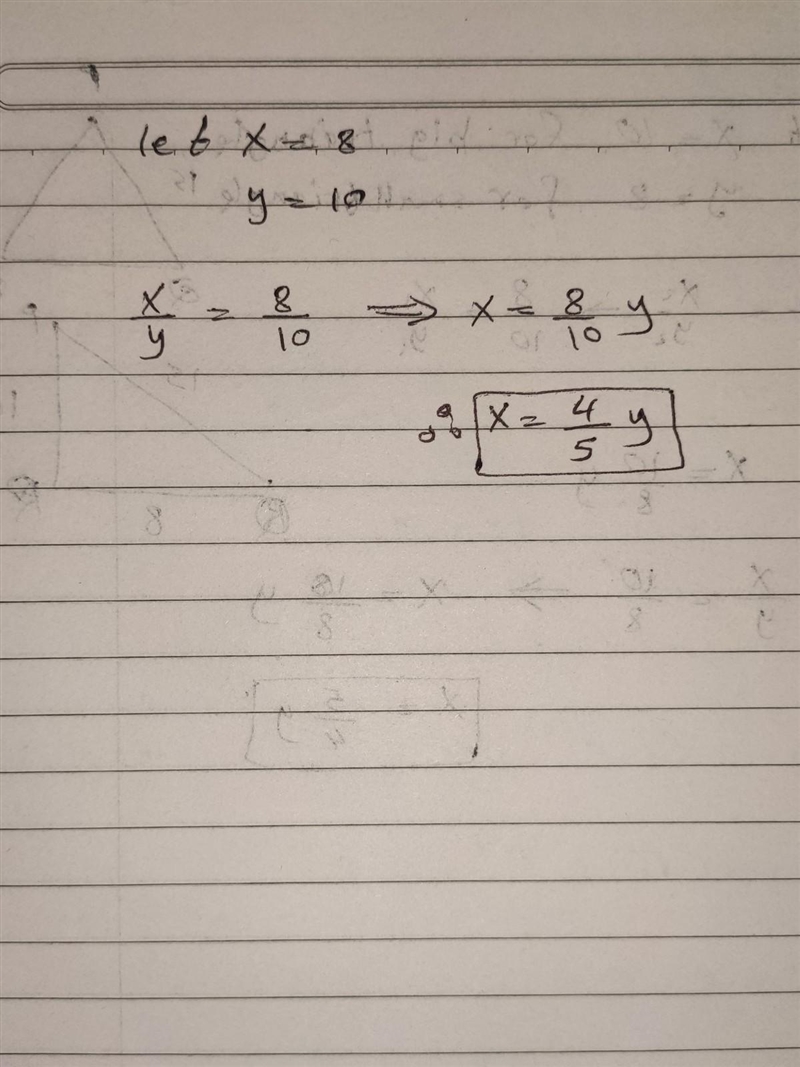 let x = 8
y = 10
x/y = 8/10 ⟹ x = 8/10 y
∴ x = 4/5 y